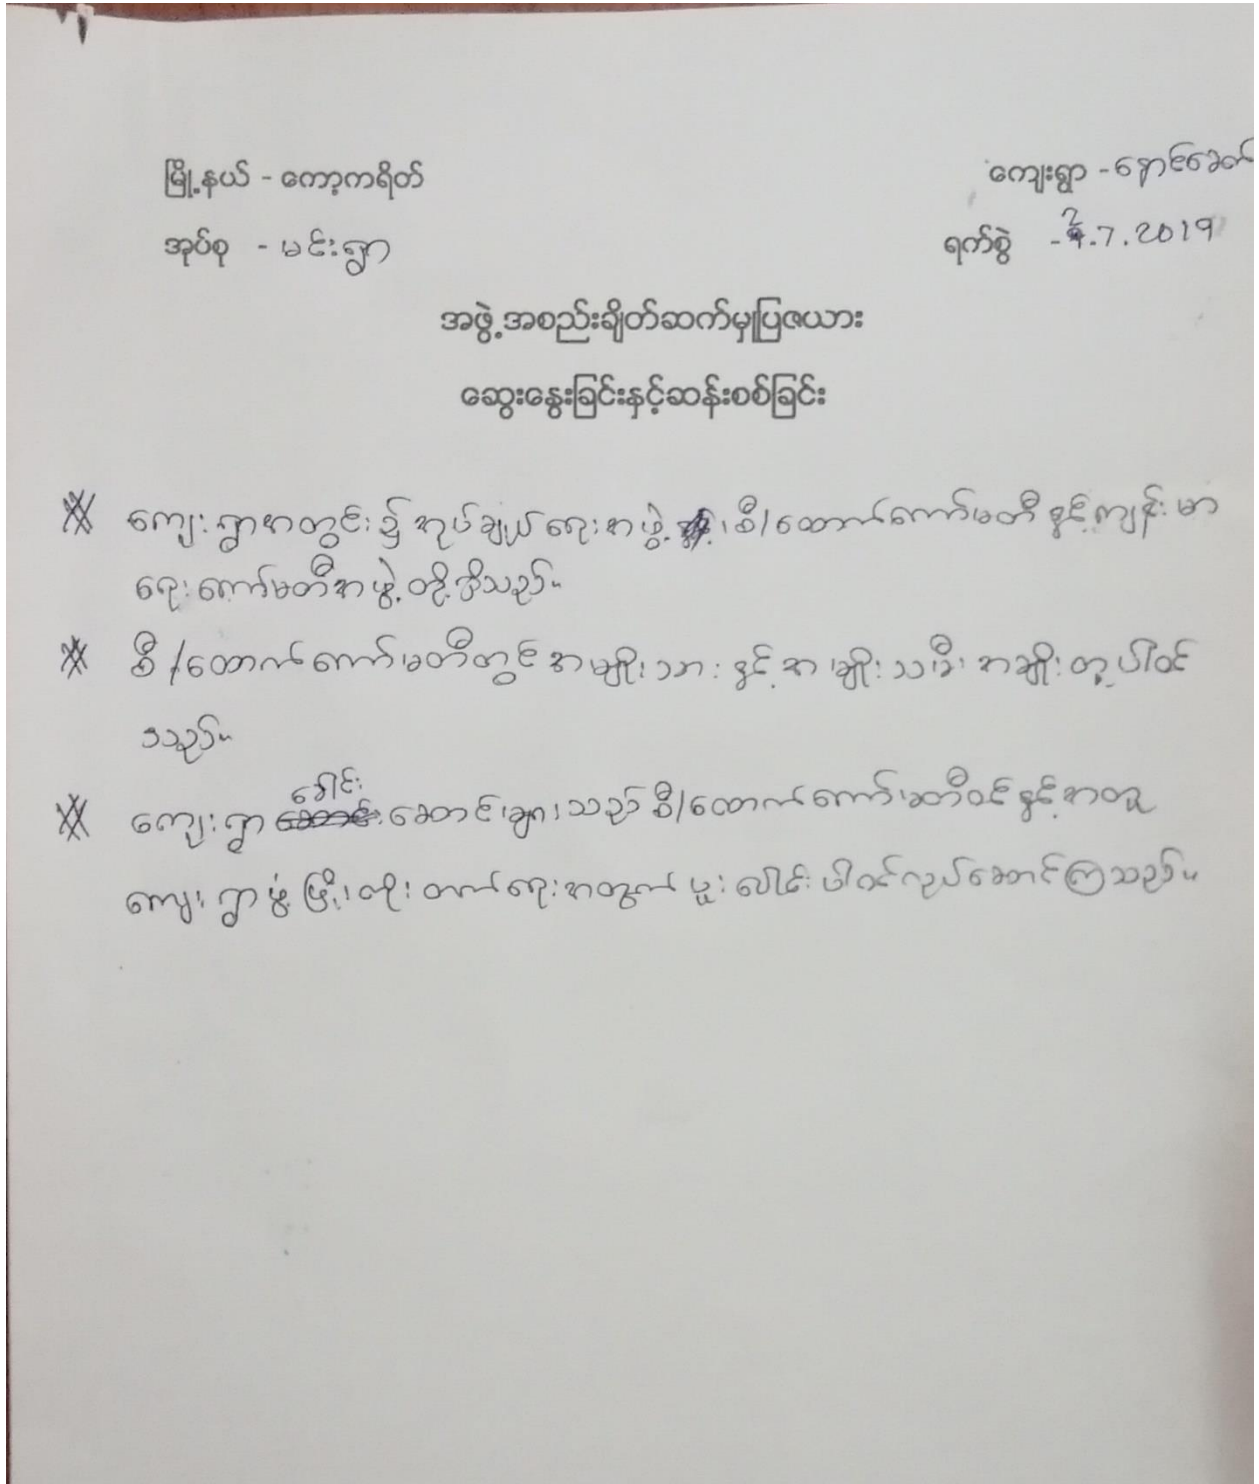 မြို့နယ် - ကော့ကရိတ် ကျေးရွာ - နောင်ခေတ်
အုပ်စု - မင်းရွာ ရက်စွဲ - 2.7.2019
အဖွဲ့အစည်းချိတ်ဆက်မှုပြဇယား
ဆွေးနွေးခြင်းနှင့်ဆန်းစစ်ခြင်း
ကျေးရွာအတွင်း၌ အုပ်ချုပ်ရေးအဖွဲ့၊ စီ/ထောက်ကော်မတီ နှင့် ကျန်းမာ
ရေးကော်မတီအဖွဲ့တို့ရှိသည်။
စီ/ထောက်ကော်မတီတွင် အမျိုးသားနှင့် အမျိုးသမီး အချိုးတူပါဝင်
သည်။
ကျေးရွာခေါင်းဆောင်များသည် စီ/ထောက်ကော်မတီဝင်နှင့်အတူ
ကျေးရွာဖွံ့ဖြိုးတိုးတက်ရေးအတွက် ပူးပေါင်းပါဝင်လုပ်ဆောင်ကြသည်။